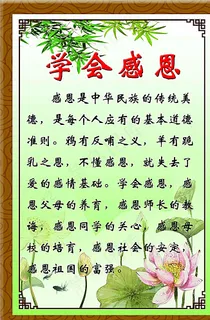 学会感恩
感恩是中华民族的传统美
德，是每个人应有的基本道德
准则。鸦有反哺之义，羊有跪
乳之恩，不懂感恩，就失去了
爱的感情基础。学会感恩，感
恩父母的养育，感恩师长的教
诲，感恩同学的关心 感恩母
校的培育，感恩社会的安定，
感恩祖国的富强。